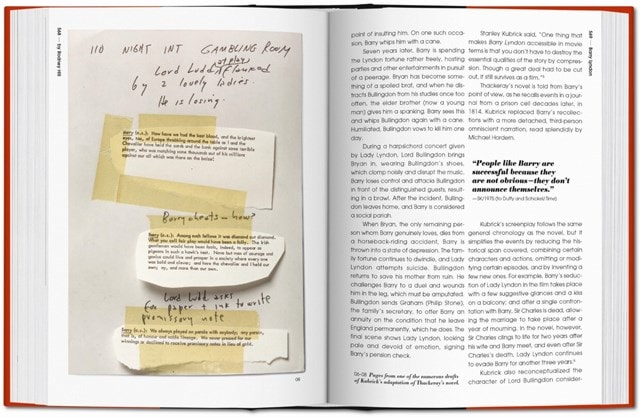 568 — by Rodney Hill
110 NIGHT INT GAMBLING ROOM
at play
Lord Ludd, flanked
by 2 lovely ladies.
He is losing.
Barry (v.o.): Now have we had the best blood, and the brightest
eyes, too, of Europe throbbing around the table as I and the
Chevalier have held the cards and the bank against some terrible
player, who was matching some thousands out of his millions
against our all which was there on the baize!
Barry cheats — how?
Barry (v.o.): Among such fellows it was diamond cut diamond.
What you call fair play would have been a folly. The Irish
gentlemen would have been fools, indeed, to appear as
pigeons in such a hawk's nest. None but men of courage and
genius could live and prosper in a society where every one
was bold and clever; and here the chevalier and I held our
own; ay, and more than our own.
Lord Ludd asks
for paper + ink to write
promissory note
Barry (v.o.): We always played on parole with anybody; any person,
that is, of honour and noble lineage. We never pressed for our
winnings or declined to receive promissory notes in lieu of gold.
05
point of insulting him. On one such occa-
sion, Barry whips him with a cane.
Seven years later, Barry is spending
the Lyndon fortune rather freely, hosting
parties and other entertainments in pursuit
of a peerage. Bryan has become some-
thing of a spoiled brat, and when he dis-
tracts Bullingdon from his studies once too
often, the elder brother (now a young
man) gives him a spanking. Barry sees this
and whips Bullingdon again with a cane.
Humiliated, Bullingdon vows to kill him one
day.
During a harpsichord concert given
by Lady Lyndon, Lord Bullingdon brings
Bryan in, wearing Bullingdon's shoes,
which clomp noisily and disrupt the music.
Barry loses control and attacks Bullingdon
in front of the distinguished guests, result-
ing in a brawl. After the incident, Bulling-
don leaves home, and Barry is considered
a social pariah.
When Bryan, the only remaining per-
son whom Barry genuinely loves, dies from
a horseback-riding accident, Barry is
thrown into a state of depression. The fam-
ily fortune continues to dwindle, and Lady
Lyndon attempts suicide. Bullingdon
returns to save his mother from ruin. He
challenges Barry to a duel and wounds
him in the leg, which must be amputated.
Bullingdon sends Graham (Philip Stone),
the family's secretary, to offer Barry an
annuity on the condition that he leave
England permanently, which he does. The
final scene shows Lady Lyndon, looking
pale and devoid of emotion, signing
Barry's pension check.
06–08 Pages from one of the numerous drafts
of Kubrick's adaptation of Thackeray's novel.
569 — Barry Lyndon
Stanley Kubrick said, "One thing that
makes Barry Lyndon accessible in movie
terms is that you don't have to destroy the
essential qualities of the story by compres-
sion. Though a great deal had to be cut
out, it still survives as a film."
Thackeray's novel is told from Barry's
point of view, as he recalls events in a jour-
nal from a prison cell decades later, in
1814. Kubrick replaced Barry's recollec-
tions with a more detached, third-person
omniscient narration, read splendidly by
Michael Hordern.
"People like Barry are
successful because they
are not obvious—they don't
announce themselves."
— SK/1975 (to Duffy and Schickel/Time)
Kubrick's screenplay follows the same
general chronology as the novel, but it
simplifies the events by reducing the his-
torical span covered, combining certain
characters and actions, omitting or modi-
fying certain episodes, and by inventing a
few new ones. For example, Barry's seduc-
tion of Lady Lyndon in the film takes place
with a few suggestive glances and a kiss
on a balcony, and after a single confron-
tation with Barry, Sir Charles is dead, allow-
ing the marriage to take place after a
year of mourning. In the novel, however,
Sir Charles clings to life for two years after
his wife and Barry meet, and even after Sir
Charles's death, Lady Lyndon continues
to evade Barry for another three years.
Kubrick also reconceptualized the
character of Lord Bullingdon consider-